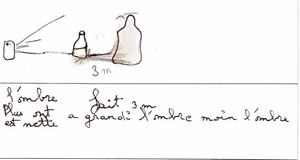 3 m
l'ombre fait 3 m
Plus ont a grandi l'ombre moin l'ombre
est nette